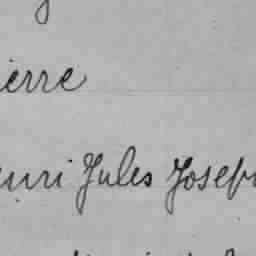 ierre
enri Jules Joseph